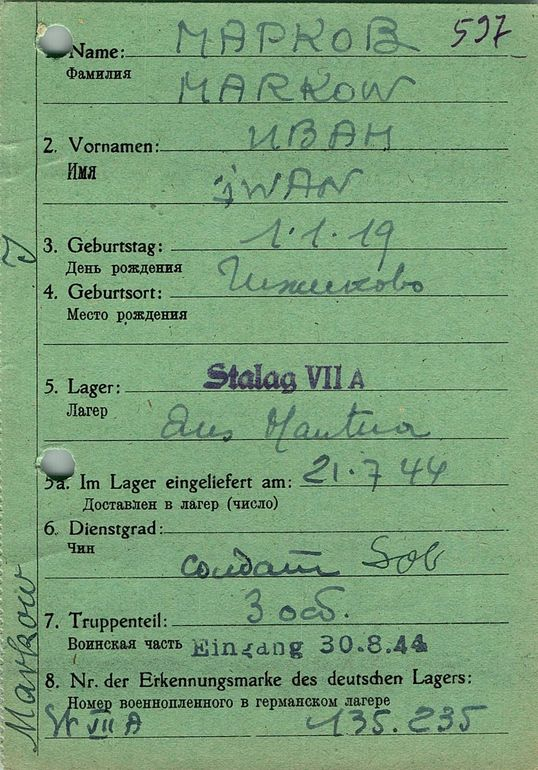 МАРКОВ 597
1. Name:
Фамилия
MARKOW
ИВАН
2. Vornamen:
Имя
JWAN
3. Geburtstag: 1.1.19
День рождения
4. Geburtsort:
Место рождения
5. Lager: Stalag VII A
Лагер
Aus Mantua
5a. Im Lager eingeliefert am: 21.7.44
Доставлен в лагер (число)
6. Dienstgrad:
Чин
солдат Sob
7. Truppenteil: 3 об.
Воинская часть Eingang 30.8.44
8. Nr. der Erkennungsmarke des deutschen Lagers:
Номер военнопленного в германском лагере
VII A 135.235
Markow J